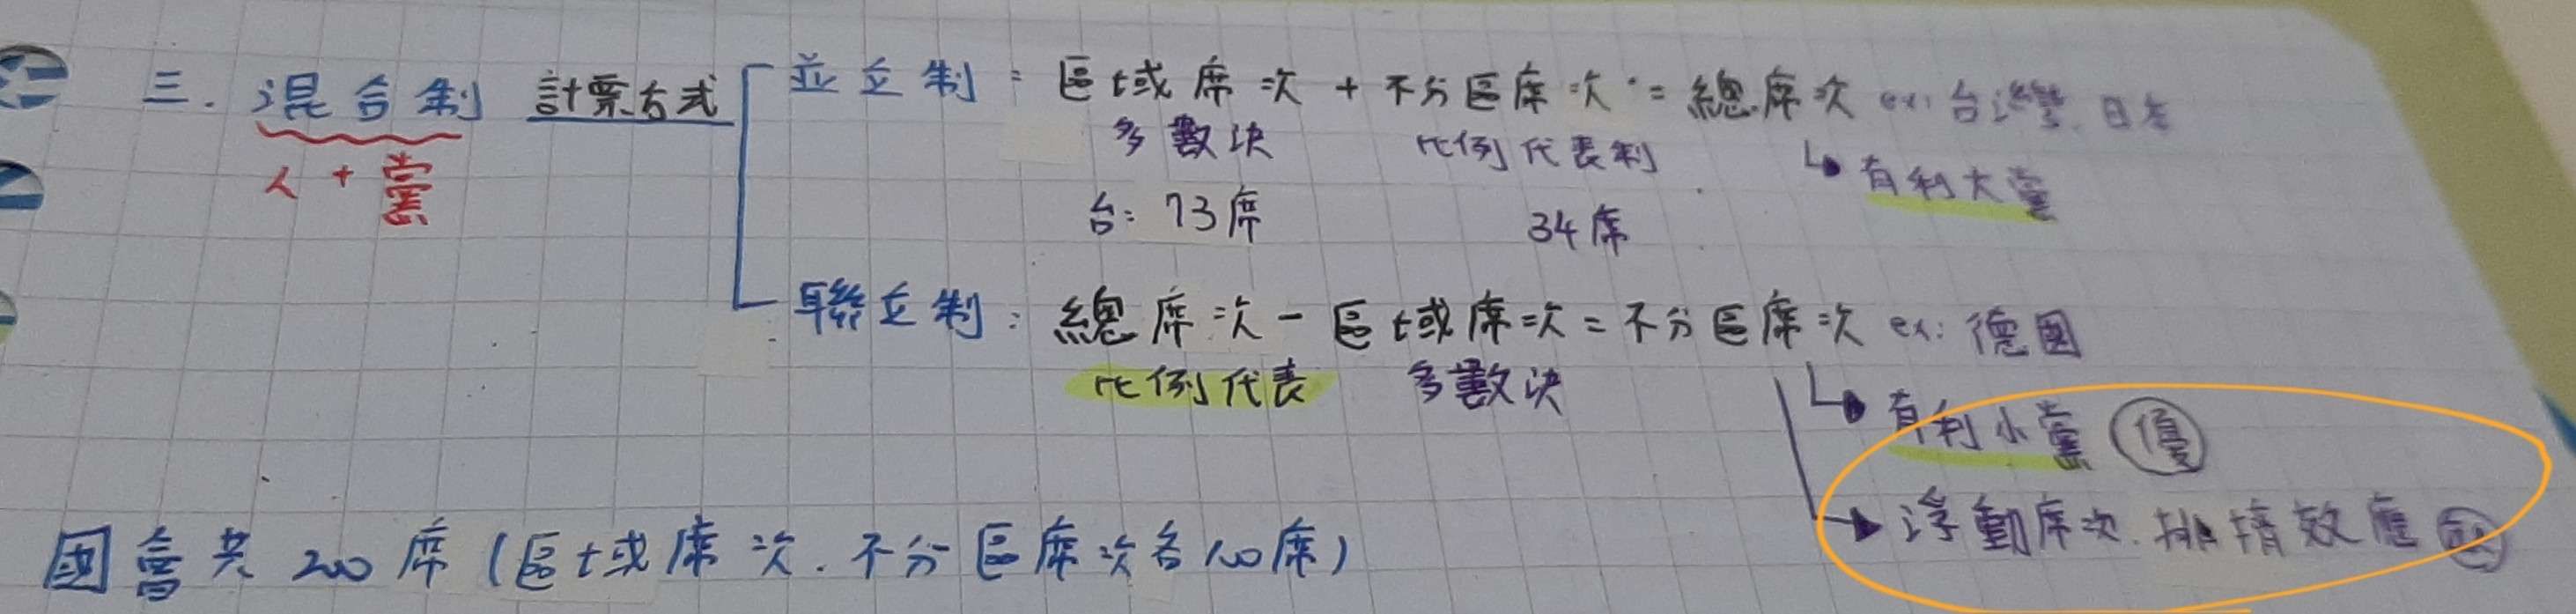 三. 混合制 計票方式 並立制: 區域席次 + 不分區席次 = 總席次 ex: 台灣、日本
人 + 黨 多數決 比例代表制 有利大黨
台: 73席 34席
聯立制: 總席次 - 區域席次 = 不分區席次 ex: 德國
比例代表 多數決 有利小黨 優
浮動席次、排擠效應
國會共 200 席 (區域席次、不分區席次各100席)